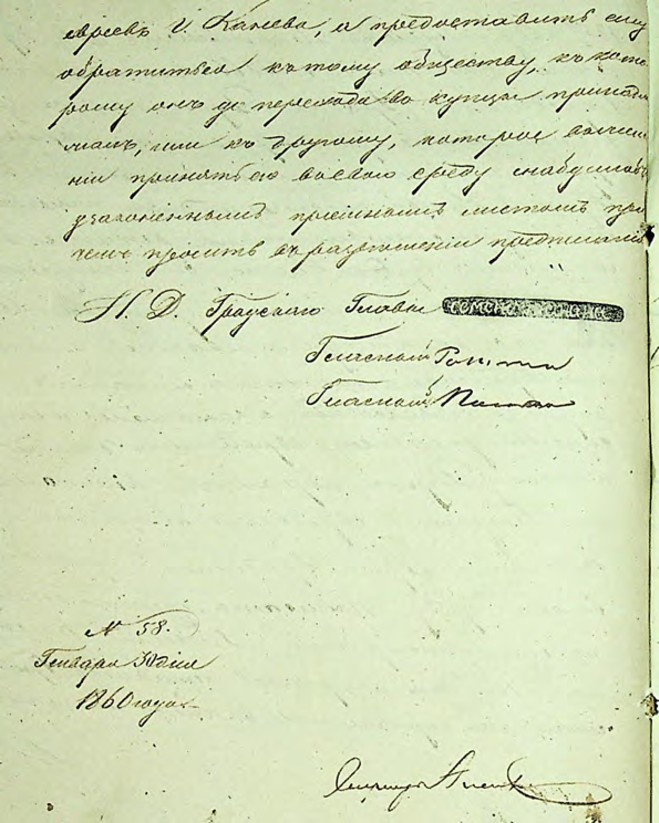 евреевъ г. Канева, а предоставить ему
обратиться къ тому обществу, къ кото
рому онъ до перехода въ купцы принадле
жалъ, или къ другому, которое по
принять его въ свою среду снабдивъ
узаконеннымъ приемнымъ листомъ при
чемъ проситъ въ разрешении предписать
И. Д. Градскаго Главы
Гласный
Гласный
N 58.
Генваря 30 дня
1860 года